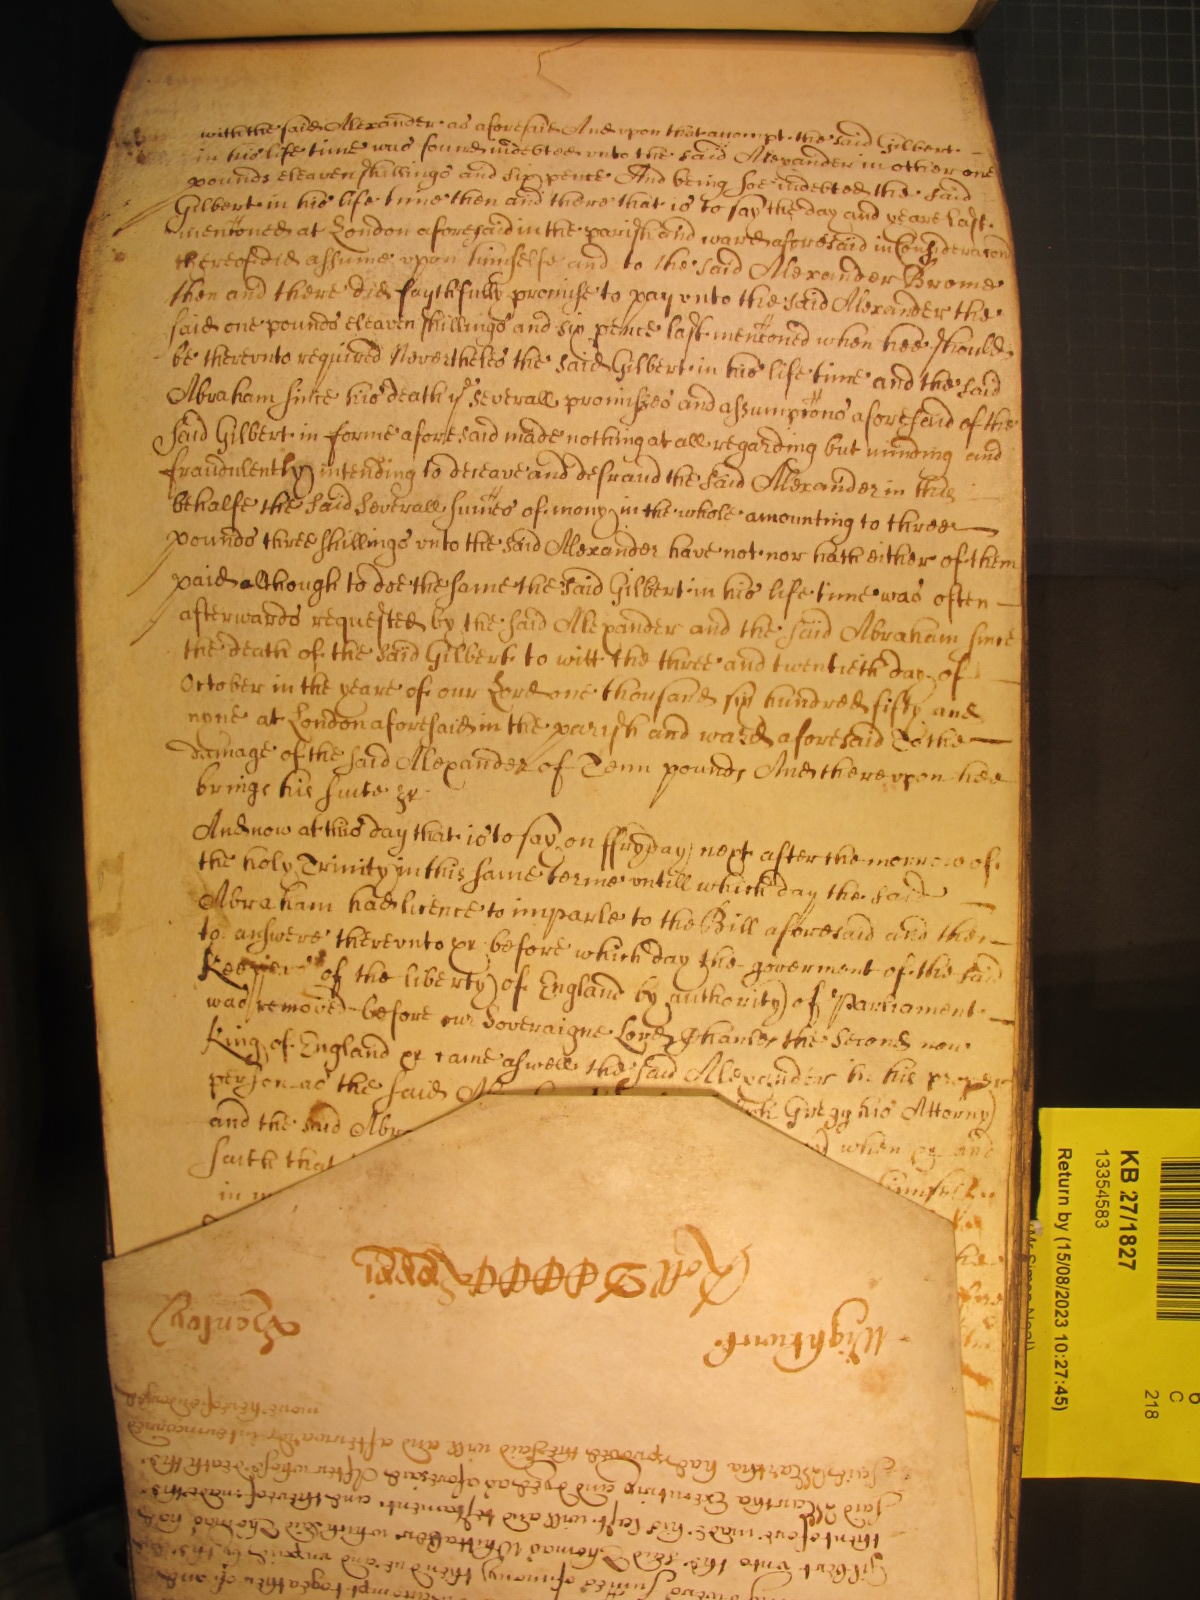 with the said Alexander as aforesaid And vpon that accompt the said Gilbert
in his life time was found indebted vnto the said Alexander in other one
pounds eleaven shillings and six pence And being soe indebted the said
Gilbert in his life time then and there that is to say the day and yeare last
mentoned at London aforesaid in the parish and ward aforesaid in Consideracon
thereof did assume vpon himselfe and to the said Alexander Brome
then and there did faythfully promise to pay vnto the said Alexander the
said one pounds eleaven shillings and six pence last mentoned when hee should
be therevnto required Nevertheles the said Gilbert in his life time and the said
Abraham since his death ye severall promises and assumptons aforesaid of the
said Gilbert in forme aforesaid made nothing at all regarding but minding and
fraudulently intending to deceave and defraud the said Alexander in this
behalfe the said severall sumes of mony in the whole amounting to three
pounds three shillings vnto the said Alexander have not nor hath either of them
paid although to doe the same the said Gilbert in his life time was often
afterwards requested by the said Alexander and the said Abraham since
the death of the said Gilbert to witt the three and twentieth day of
October in the yeare of our Lord one thousand six hundred fifty and
nyne at London aforesaid in the parish and ward aforesaid To the
damage of the said Alexander of Tenn pounds And therevpon hee
brings his suite &c
And now at this day that is to say on ffryday next after the morrow of
the holy Trinity in this same terme vntill which day the said
Abraham had licence to imparle to the Bill aforesaid and then
to answere therevnto &c before which day the goverment of the said
Keepers of the liberty of England by authority of Parliament
was removed before our Soveraigne Lord Charles the second now
King of England &c came aswell the said Alexander by his proper
person as the said
Gregg his Attorny
and the said Abr
when &c and
saith that
in
himselfe
Roll
Wightwick
Henley
more heretofore
said Martha had proved the said will and afterwards intermarried
said Martha Executrix and dyed as aforesaid After whose death the
theretofore made his last will and testament and thereof made the
Gilbert vnto the said Thomas Whittaker which said Thomas had
severall sumes of mony then due and vnpaid by the said
accompt togeather of and
KB 27/1827
13354583
Return by (15/08/2023 10:27:45)
Mr Simon Neal)
6
C
218